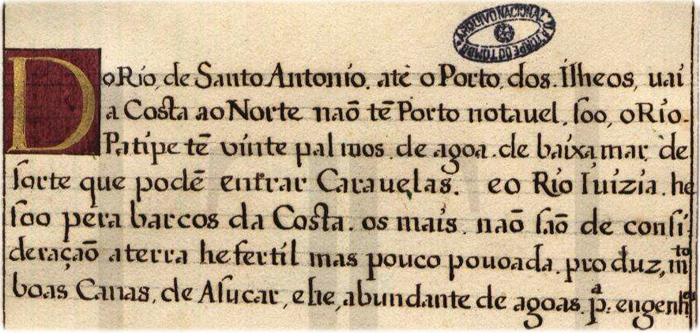 ARQUIVO NACIONAL DA TORRE DO TOMBO
Do Rio, de Santo Antonio, até o Porto, dos. Ilheos, uai
a Costa ao Norte naõ tẽ Porto notauel, soo, o Rio.
Patipe tẽ vinte palmos. de agoa. de baixa mar, de
sorte que podẽ entrar Carauelas. e o Rio Iuizia. he
soo pera barcos da Costa. os mais. naõ saõ de consi
deraçaõ a terra he fertil mas pouco pouoada. produz, mto
boas Canas, de Asucar, e he, abundante de agoas. pa. engenhos